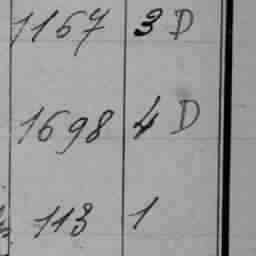 1167 3 D
1698 4 D
113 1